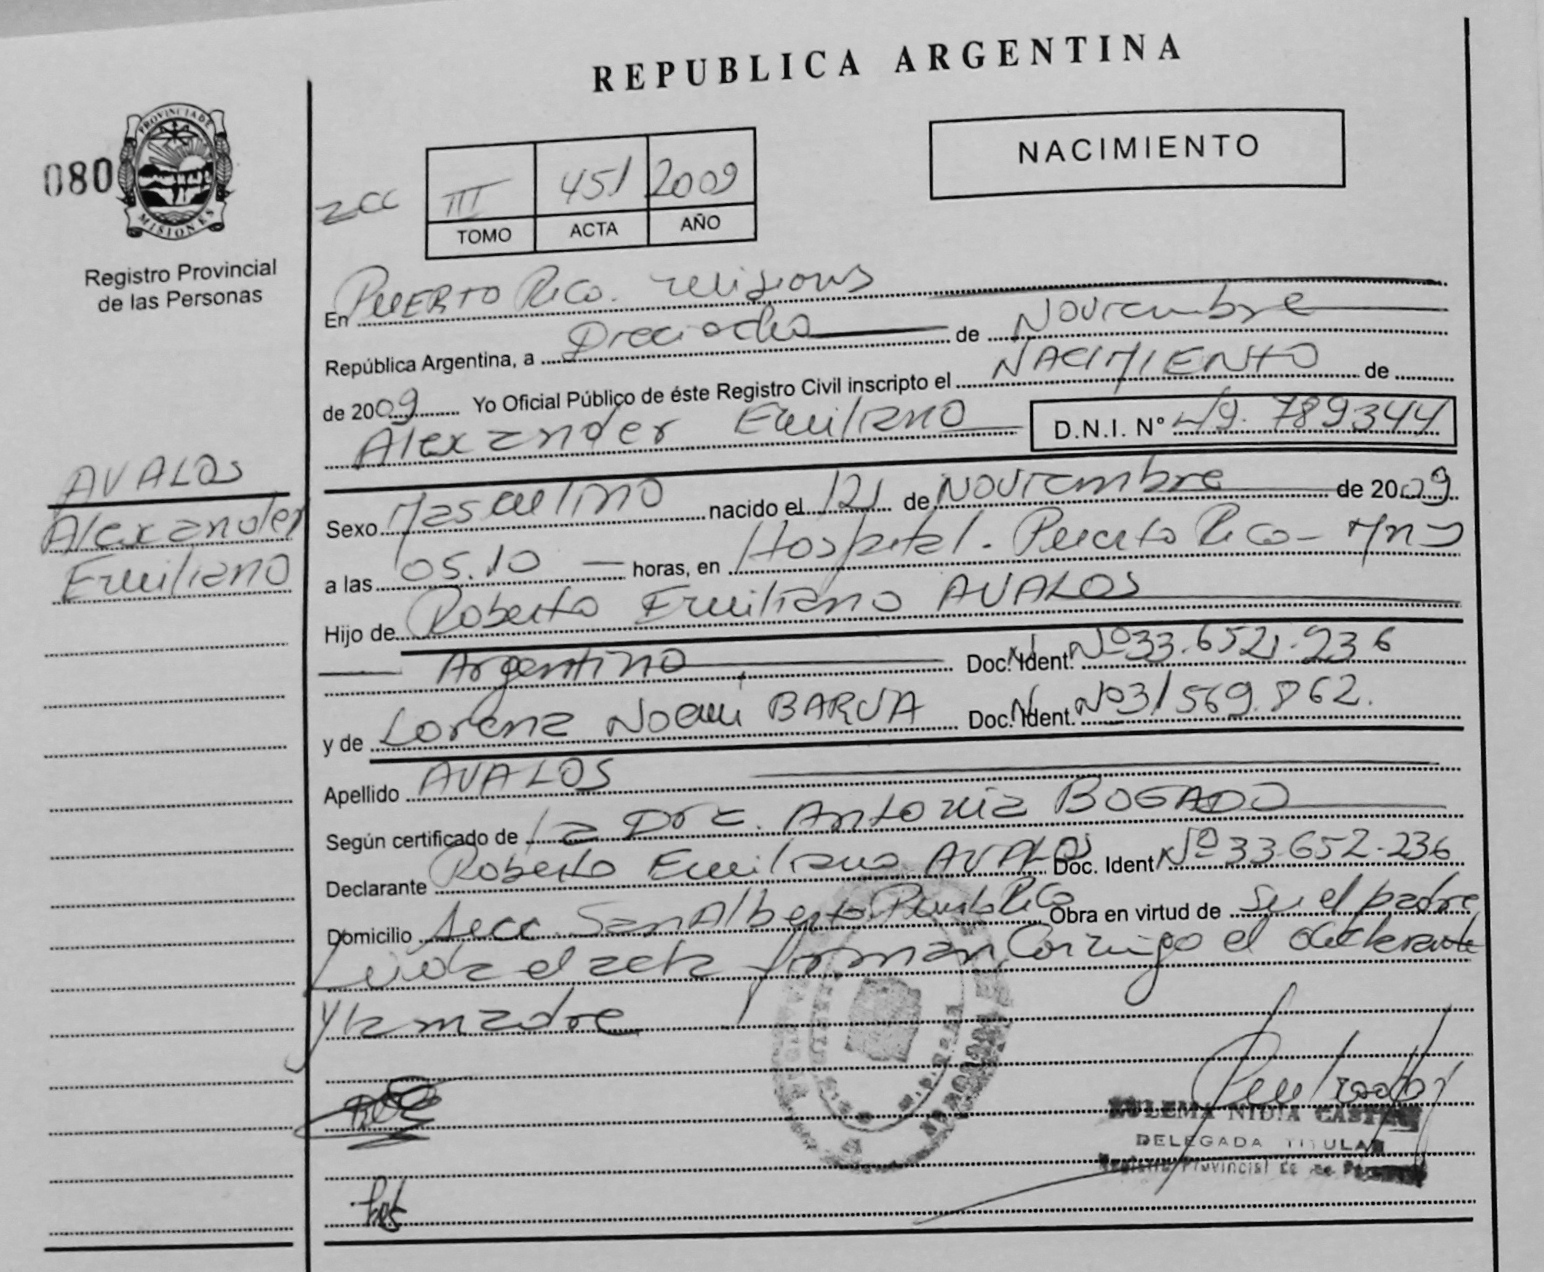 REPUBLICA ARGENTINA
080
PROVINCIA DE
MISIONES
Registro Provincial
de las Personas
NACIMIENTO
III 451 2009
TOMO ACTA AÑO
En PUERTO RICO. Misiones
República Argentina, a Dieciocho de Noviembre
de 2009 Yo Oficial Público de éste Registro Civil inscripto el NACIMIENTO de
Alexander Emiliano D.N.I. Nº 49.789344
AVALOS
Alexander
Emiliano
Sexo Masculino nacido el 12 de Noviembre de 2009
a las 05.10 horas, en Hospital. Puerto Rico - Mnes
Hijo de Roberto Emiliano AVALOS
Argentino Doc. Ident. Nº 33.652.236
y de Lorena Noemi BARUA Doc. Ident. Nº 31569.862.
Apellido AVALOS
Según certificado de la Dra. Antonia BOGADO
Declarante Roberto Emiliano AVALOS Doc. Ident Nº 33.652.236
Domicilio Secc. San Alberto Puerto Rico Obra en virtud de Ser el padre
Leida el acta firman Conmigo el declarante
y la madre
ZULEMA NIDIA
DELEGADA TITULAR
Registro Provincial de